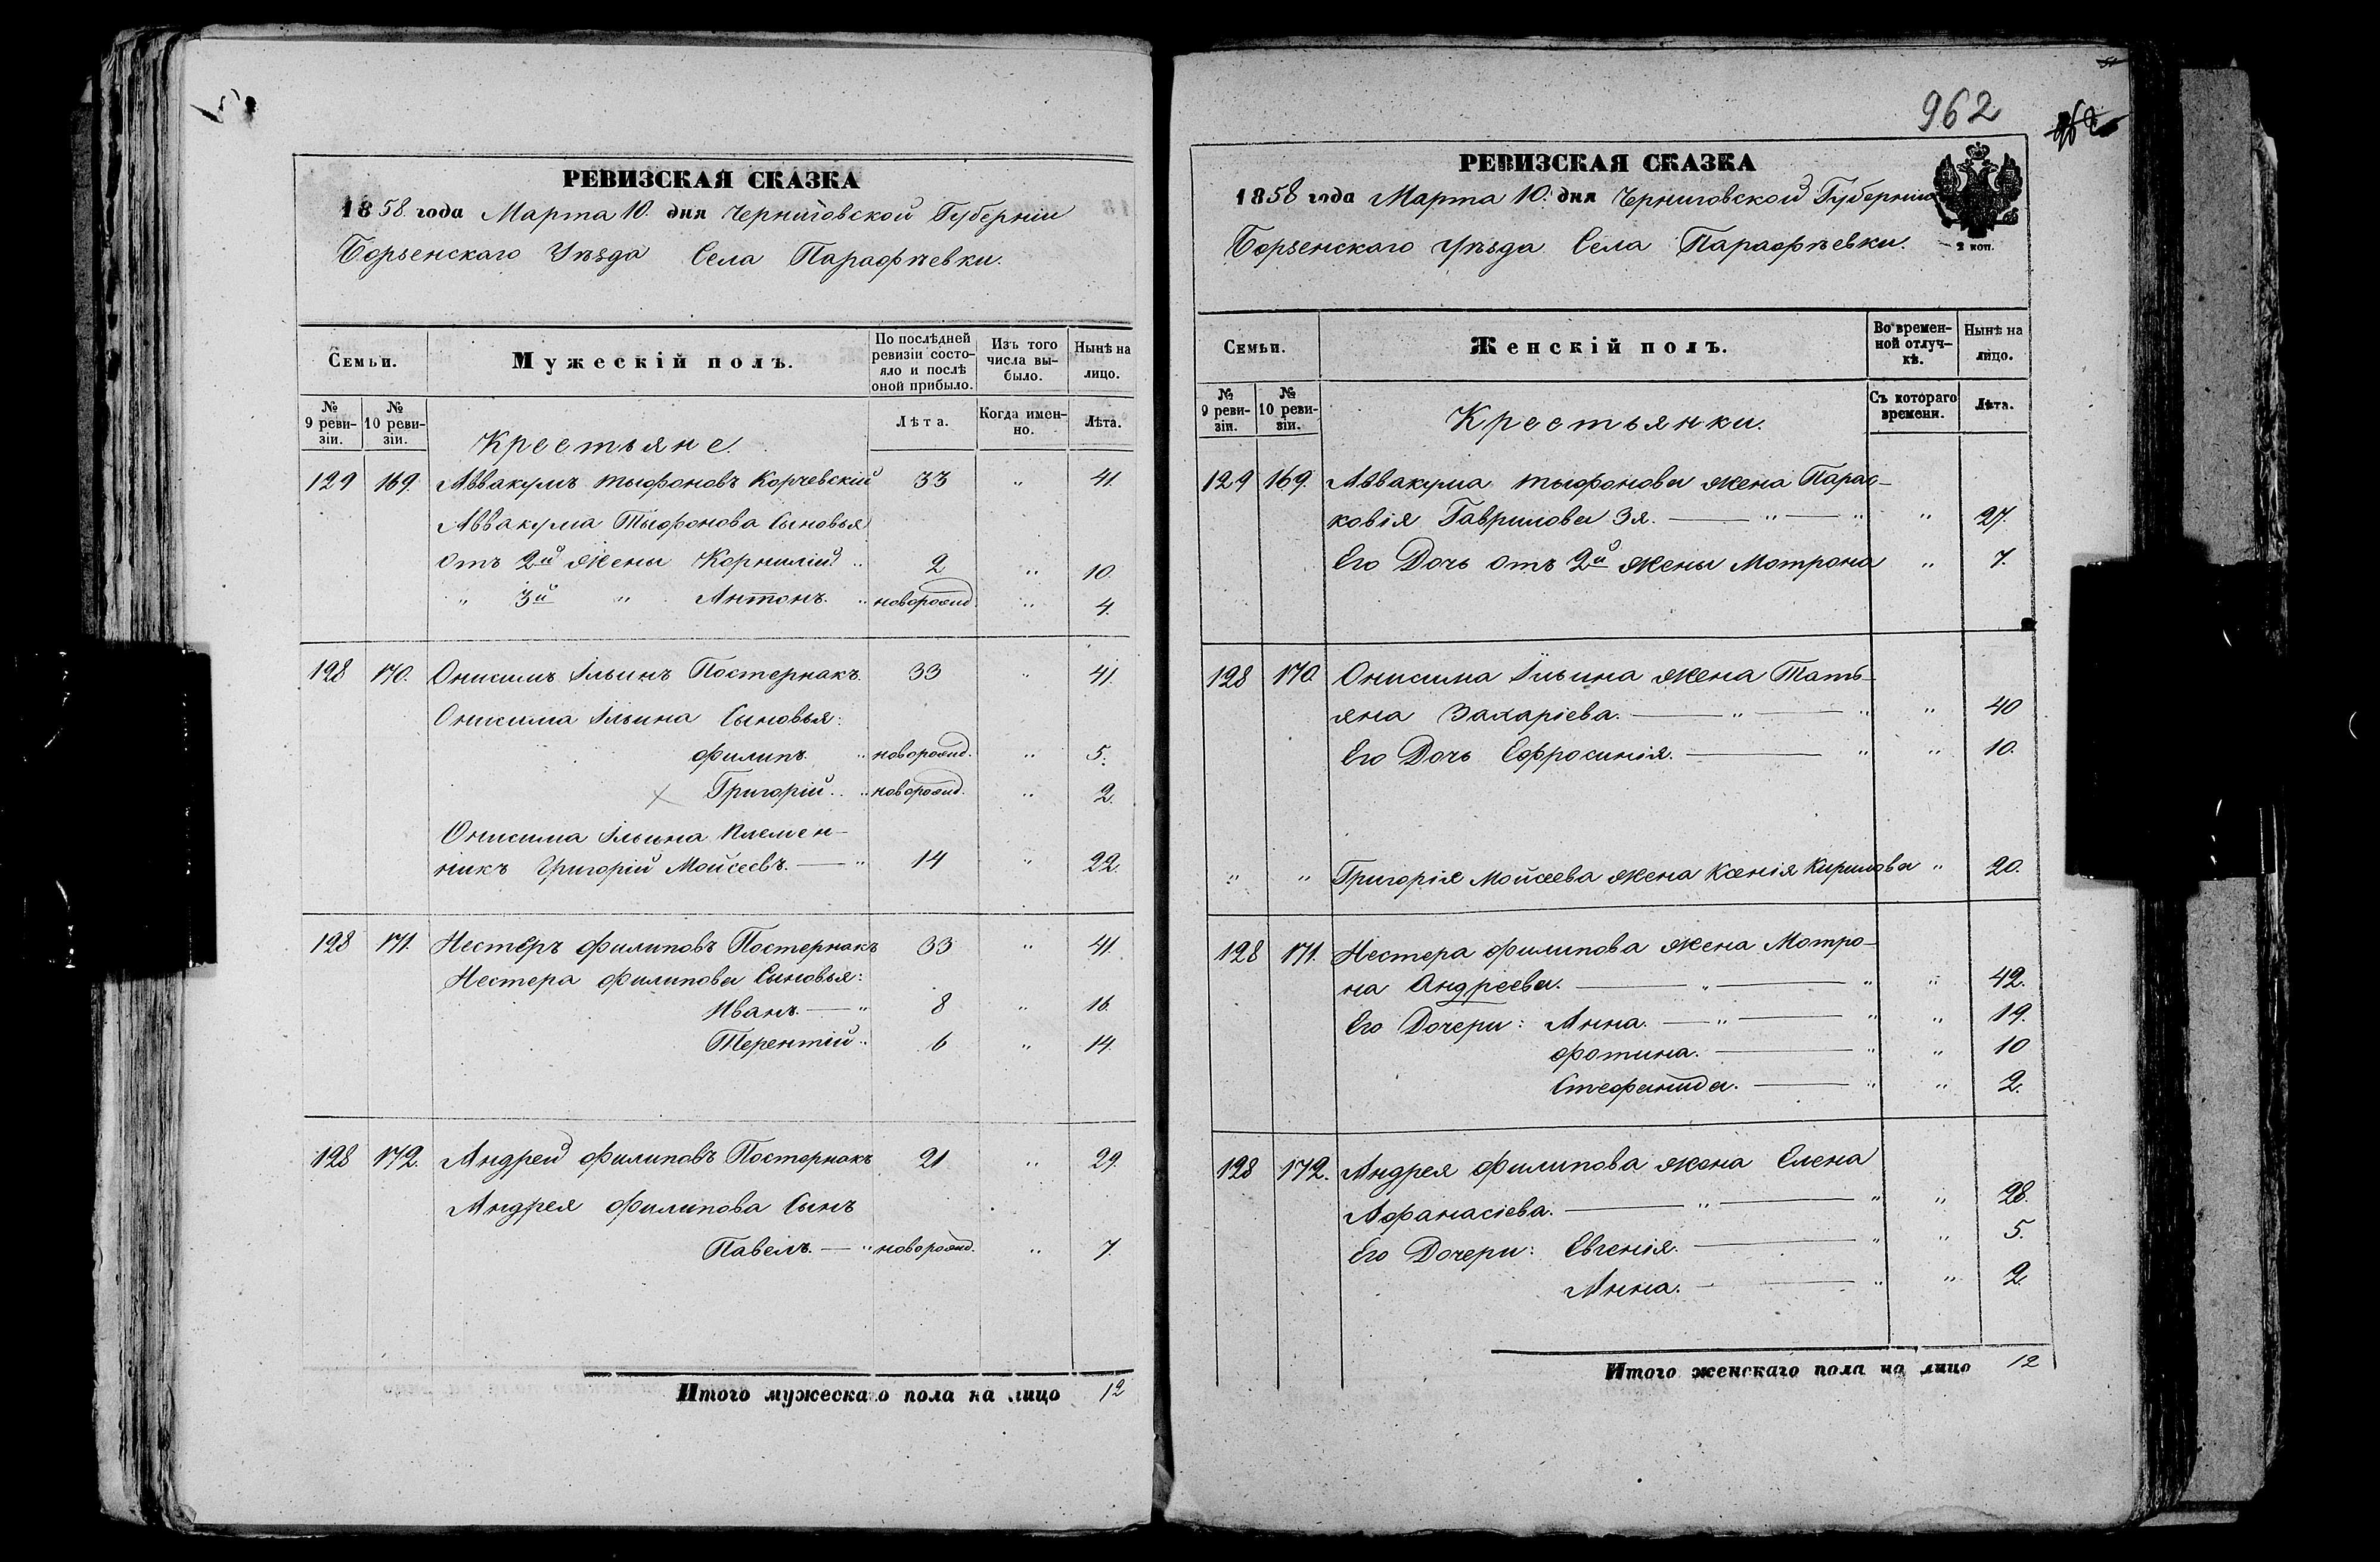 РЕВИЗСКАЯ СКАЗКА
1858 года Марта 10. дня Черниговской Губерніи
Борзенскаго Уѣзда Села Парафѣевки.
Семьи.
Мужескій полъ.
По послѣдней ревизіи состояло и послѣ оной прибыло.
Изъ того числа выбыло.
Нынѣ на лицо.
№ 9 ревизіи.
№ 10 ревизіи.
Лѣта.
Когда именно.
Лѣта.
Крестьяне.
129 169. Аввакумъ Корчевскій 33 " 41.
Аввакума Сыновья
Отъ 2й жены Корнилій " 2 " 10.
" 3й " Антонъ. " новорожд. " 4.
128 170. Онисимъ Ильинъ Постернакъ. 33 " 41.
Онисима Ильина Сыновья:
Филипъ. " новорожд. " 5.
Григорій. " новорожд. " 2.
Онисима Ильина племен-
никъ Григорій Мойсеевъ. — " 14 " 22.
128 171. Нестеръ Филиповъ Постернакъ 33 " 41.
Нестера Филипова Сыновья:
Иванъ. — " 8 " 16.
Терентій " 6 " 14.
128 172. Андрей Филиповъ Постернакъ 21 " 29.
Андрея Филипова Сынъ
Павелъ. — " новорожд. " 7.
Итого мужескаго пола на лицо 12
962
РЕВИЗСКАЯ СКАЗКА
1858 года Марта 10. дня Черниговской Губерніи
Борзенскаго Уѣзда Села Парафѣевки.
2 коп.
Семьи.
Женскій полъ.
Во временной отлучкѣ.
Нынѣ на лицо.
№ 9 ревизіи.
№ 10 ревизіи.
Съ котораго времени.
Лѣта.
Крестьянки.
129 169. Аввакума жена Парас-
ковія Гаврилова 3я. — " — " " 27.
Его Дочь отъ 2й жены Мотрона " 7.
128 170. Онисима Ильина жена Тать-
яна Захаріева. — " — " " 40
Его Дочь Ефросинія. — " " 10.
" " Григорія Мойсеева жена Ксенія Кирилова " 20.
128 171. Нестера Филипова жена Мотро-
на Андреева. — " — " " 42.
Его Дочери: Анна. — " — " " 19.
Фотина. — " " 10
Стефанида. — " " 2.
128 172. Андрея Филипова жена Елена
Афанасіева. — " — " " 28.
Его Дочери: Евгенія. — " " 5.
Анна. — " " 2.
Итого женскаго пола на лицо 12